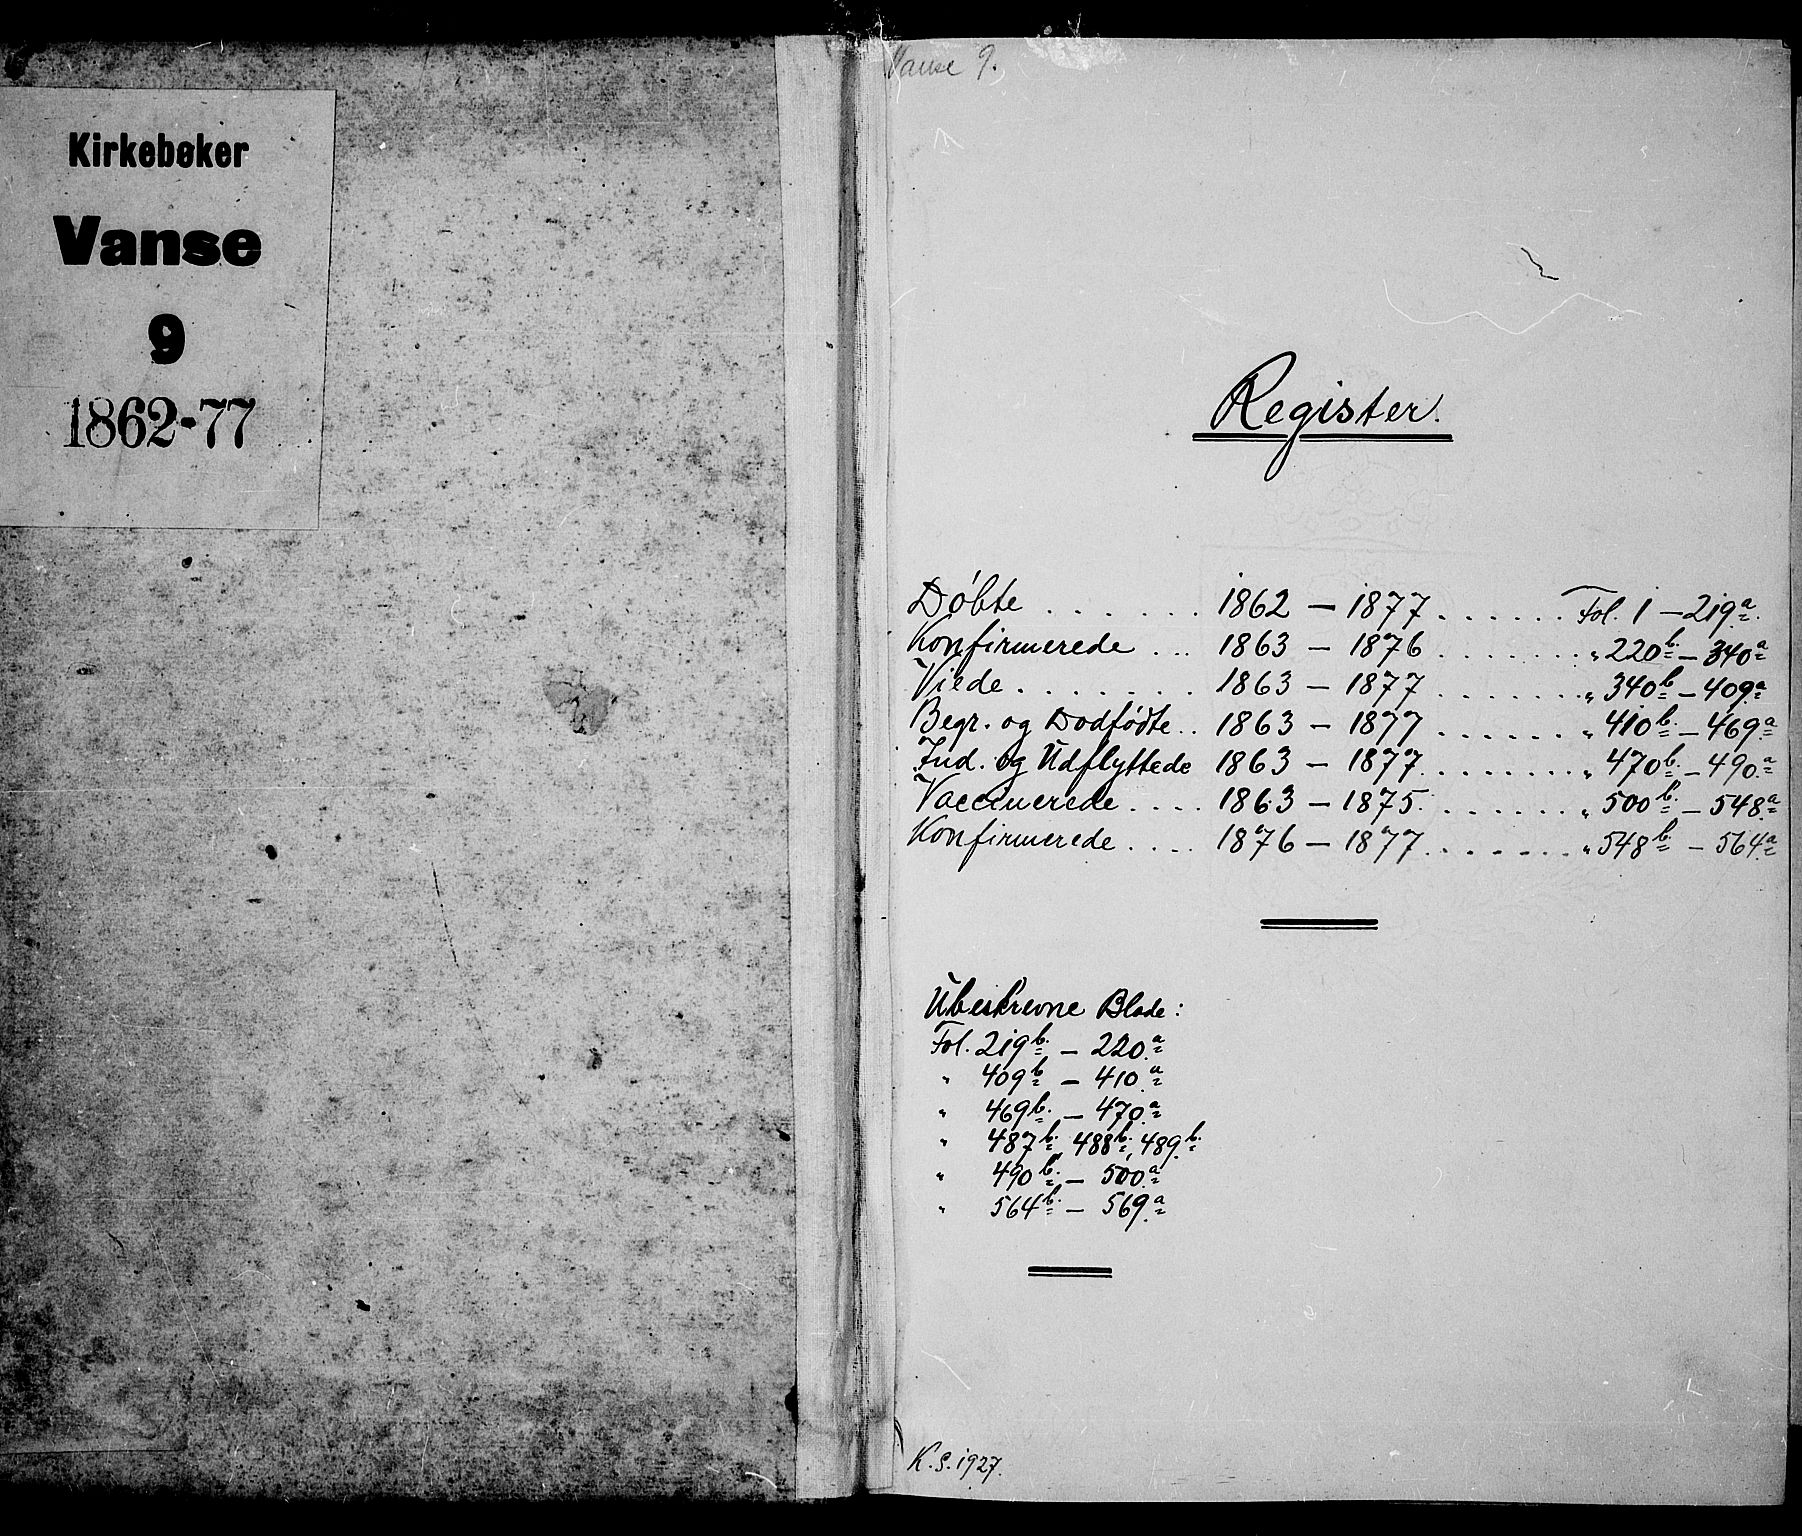 Kirkebøker
Vanse
9
1862-77
Vanse 9.
Register.
Døbte . . . . . . 1862 — 1877 . . . . . . Fol. 1 — 219a.
Konfirmerede . . . 1863 — 1876 . . . . . . „ 220b. — 340a
Viede . . . . . . . 1863 — 1877 . . . . . . „ 340b — 409a
Begr. og Dødfødte . . 1863 — 1877 . . . . . . „ 410b. — 469a
Ind. og Udflyttede 1863 — 1877 . . . . . . „ 470b. — 490a
Vaccinerede . . . . 1863 — 1875 . . . . . . „ 500b. — 548a
Konfirmerede . . . . 1876 — 1877 . . . . . . „ 548b — 564a
Ubeskrevne Blade:
Fol. 219b. — 220a
„ 409b — 410a
„ 469b. — 470a
„ 487b., 488b., 489b.
„ 490b. — 500a
„ 564b. — 569a
K. S. 1927.